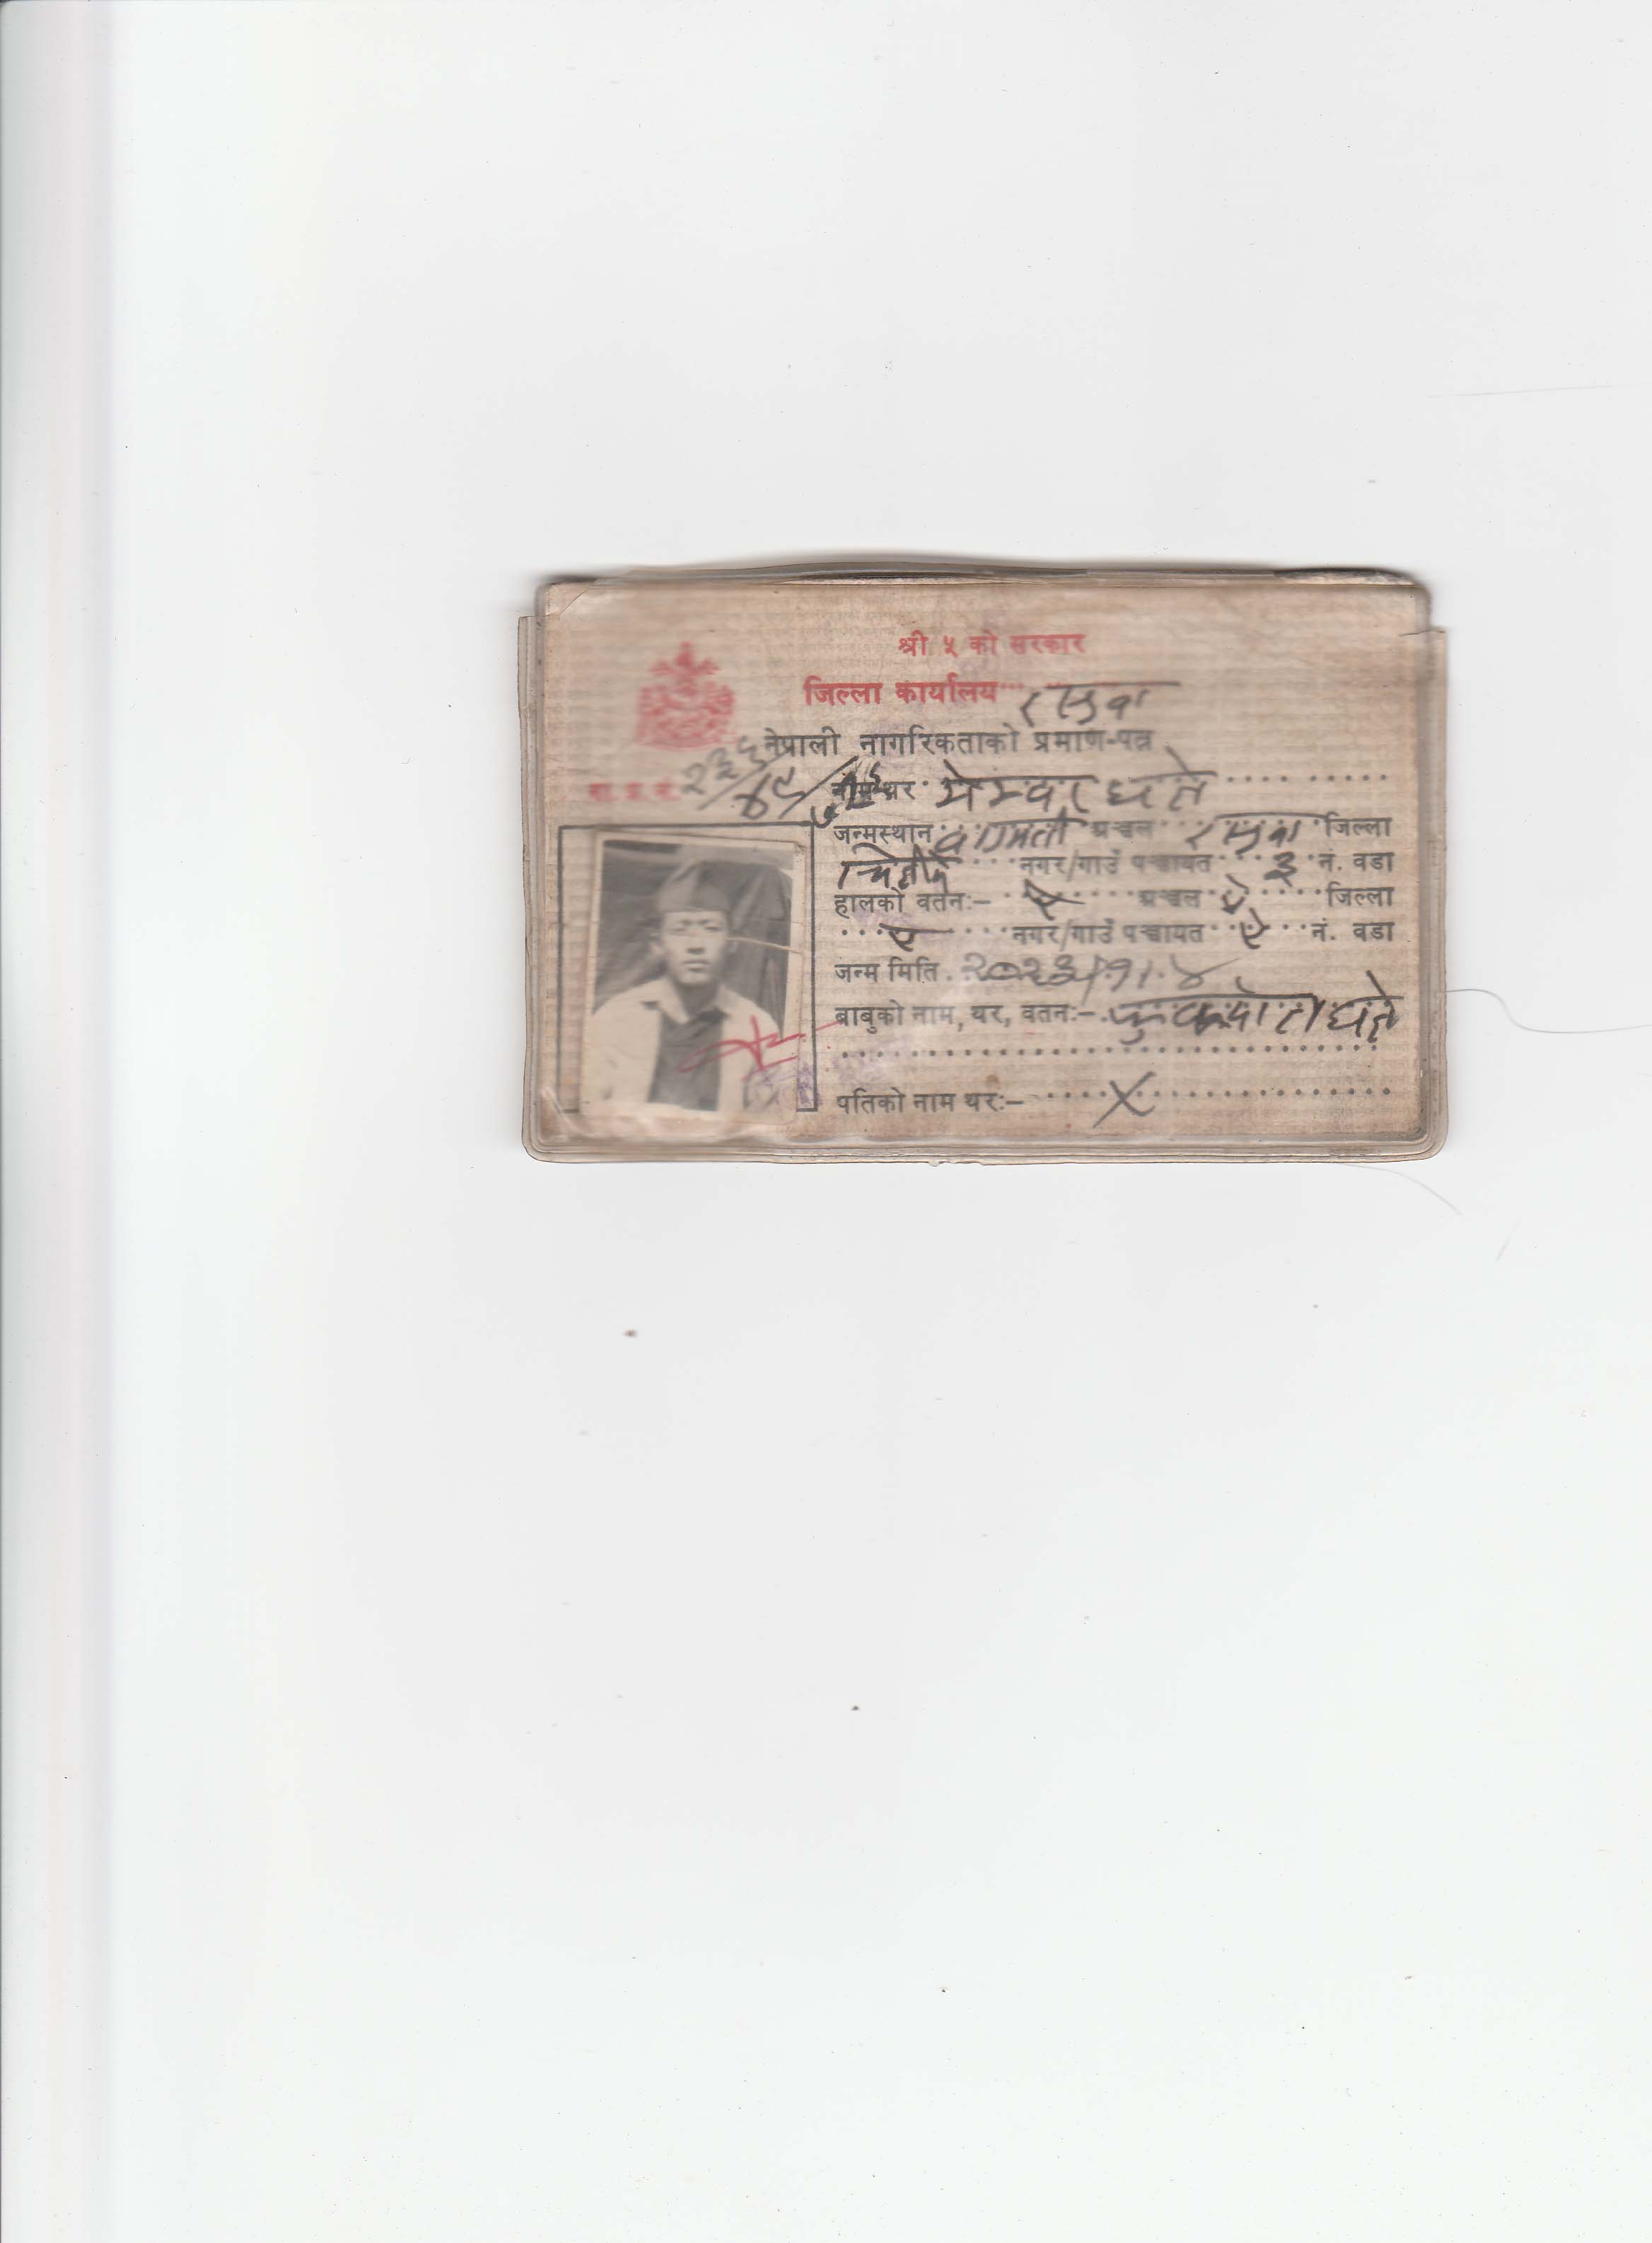 श्री ५ को सरकार
जिल्ला कार्यालय रसुवा
नेपाली नागरिकताको प्रमाण-पत्र
ना. प्र. नं. २३६
थर पेम्वार घले
जन्मस्थान वागमती अञ्चल रसुवा जिल्ला
नगर/गाउँ पञ्चायत ३ नं. वडा
हालको वतनः- ऐ अञ्चल ऐ जिल्ला
ऐ नगर/गाउँ पञ्चायत ऐ नं. वडा
जन्म मिति २०२३।११।४
बाबुको नाम, थर, वतनः- घले
पतिको नाम थरः- X